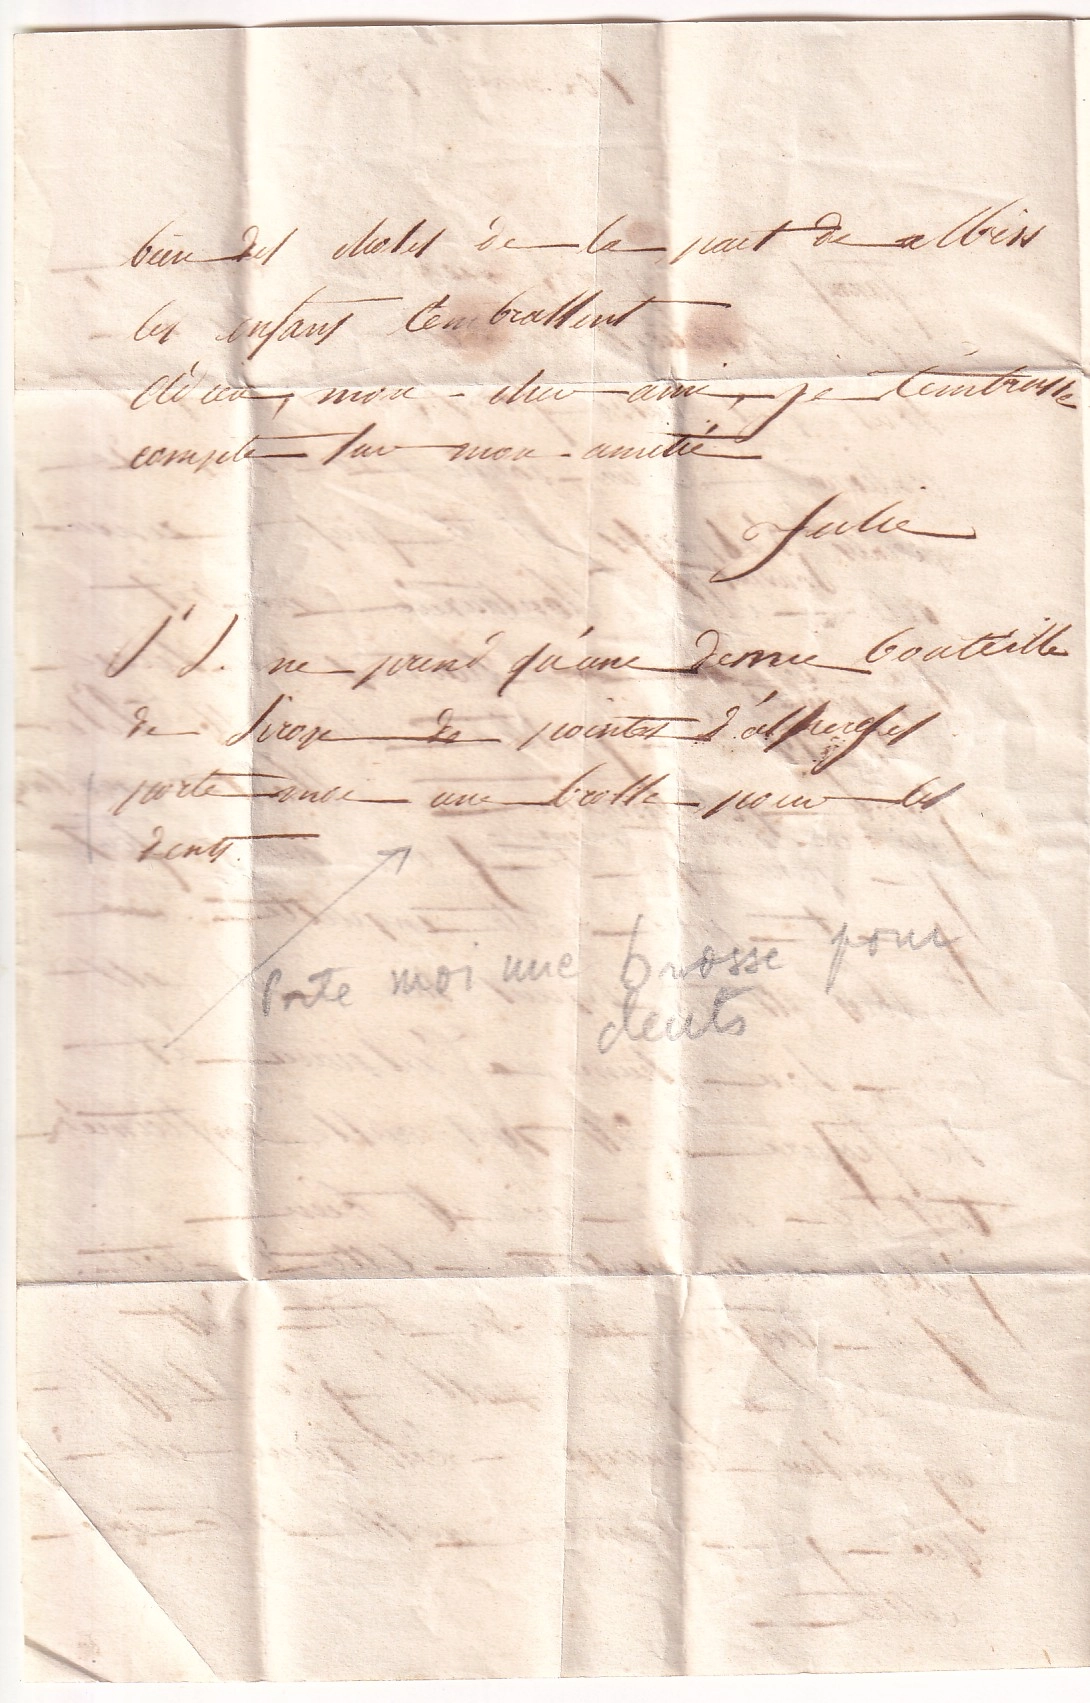 bien des choses de la part de
les enfans t'embrassent
adieu, mon cher ami, je t'embrasse
compte sur mon amitié
Julie
ne prend qu'une demie bouteille
de sirop de pointes d'asperges
porte moi une brosse pour les
dents
Porte moi une brosse pour
dents